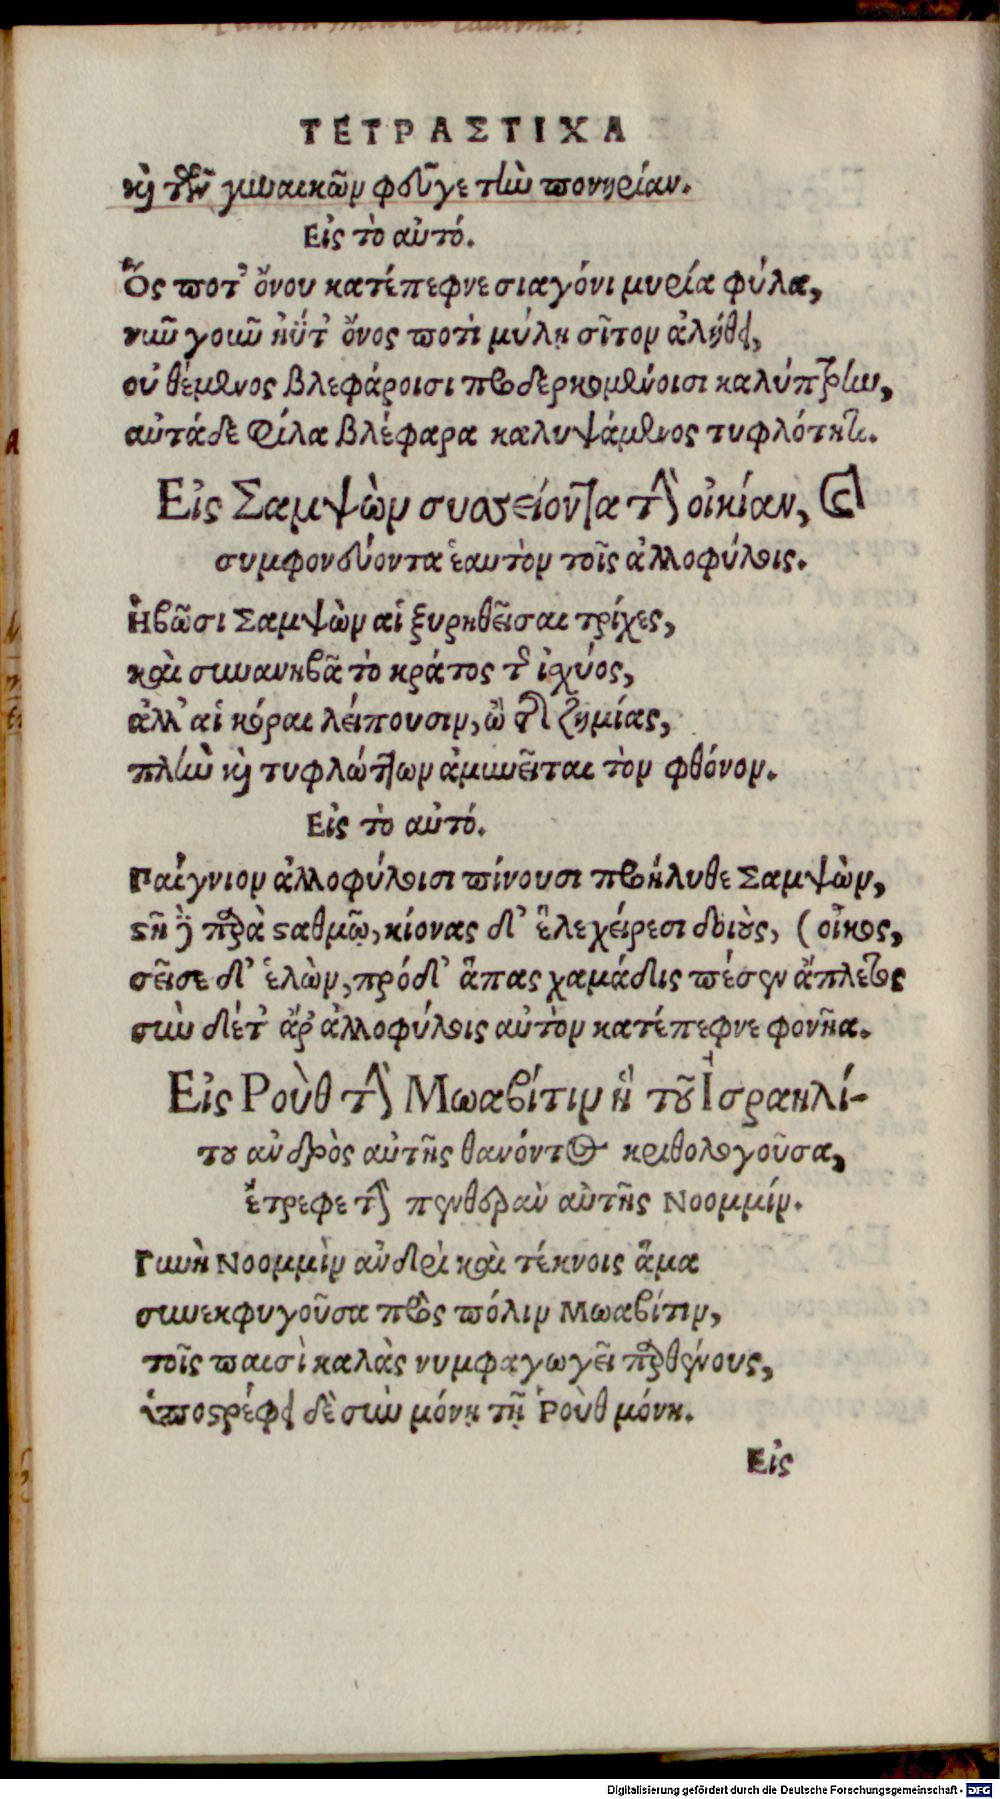 ΤΕΤΡΑΣΤΙΧΑ
καὶ τῶν γυναικῶν φεῦγε τὴν πονηρίαν.
Εἰς τὸ αὐτό.
Ὅς ποτ' ὄνου κατέπεφνε σιαγόνι μυρία φύλα,
νῦν γοῦν ἠΰτ' ὄνος ποτὶ μύλῃ σῖτον ἀλήθει,
οὐ θέμενος βλεφάροισι προδερκομένοισι καλύπτρην,
αὐτὰ δὲ φίλα βλέφαρα καλυψάμενος τυφλότητι.
Εἰς Σαμψὼν συσσείοντα τὴν οἰκίαν, καὶ
συμφονεύοντα ἑαυτὸν τοῖς ἀλλοφύλοις.
Ἡβῶσι Σαμψὼν αἱ ξυρηθεῖσαι τρίχες,
καὶ συνανηβᾷ τὸ κράτος τῆς ἰσχύος,
ἀλλ' αἱ κόραι λείπουσιν, ὢ τῆς ζημίας,
πλὴν καὶ τυφλώττων ἀμυνεῖται τὸν φθόνον.
Εἰς τὸ αὐτό.
Παίγνιον ἀλλοφύλοισι πίνουσι προήλυθε Σαμψὼν,
στῆ δὲ παρὰ σταθμῷ, κίονας δ' ἕλε χείρεσι δοιοὺς, (οἶκος,
σεῖσε δ' ἑλὼν, πρόδ' ἅπας χαμάδις πέσεν ἄπλετος
σὺν δέ τ' ἄρ' ἀλλοφύλοις αὐτὸν κατέπεφνε φονῆα.
Εἰς Ροὺθ τὴν Μωαβίτιν ἣ τοῦ Ἰσραηλί-
του ἀνδρὸς αὐτῆς θανόντος κριθολογοῦσα,
ἔτρεφε τὴν πενθερὰν αὐτῆς Νοομμίν.
Γυνὴ Νοομμὶν ἀνδρὶ καὶ τέκνοις ἅμα
συνεκφυγοῦσα πρὸς πόλιν Μωαβίτιν,
τοῖς παισὶ καλὰς νυμφαγωγεῖ παρθένους,
ὑποστρέφει δὲ σὺν μόνῃ τῇ Ῥοὺθ μόνη.
Εἰς
Digitalisierung gefördert durch die Deutsche Forschungsgemeinschaft - DFG